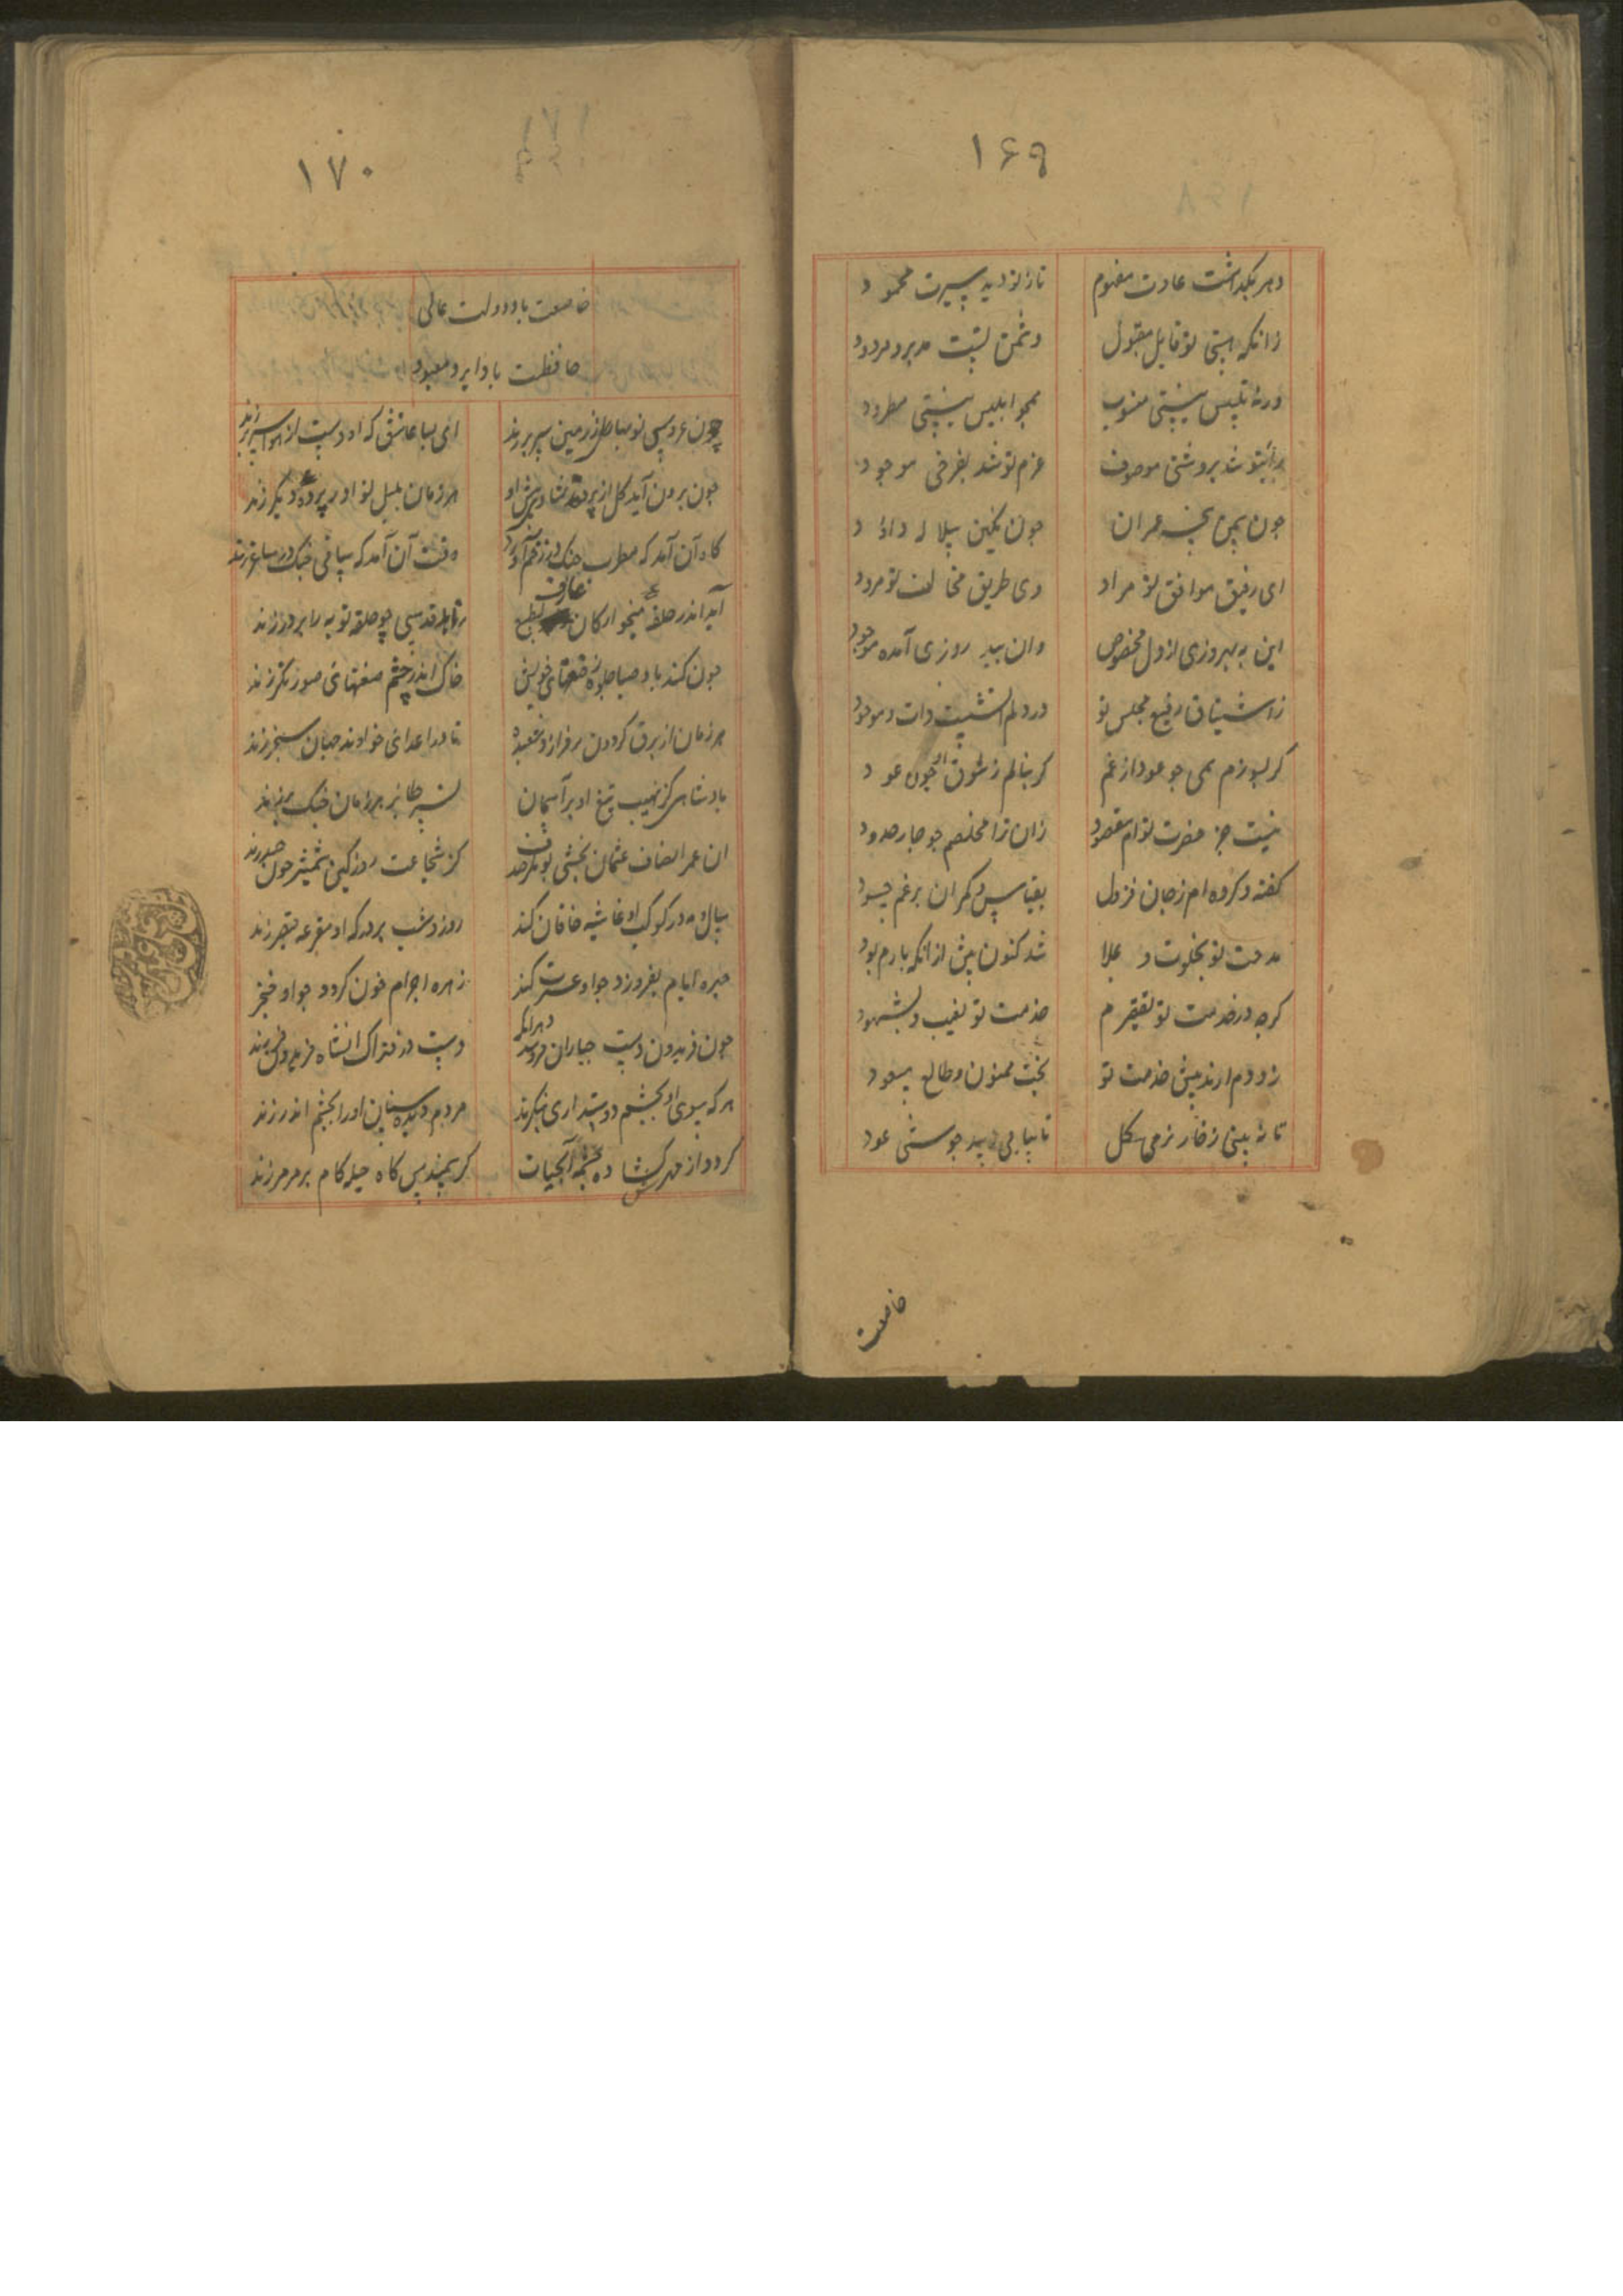 ۱۶۹
دهر بگذاشت عادت مذموم تا ز تو دید سیرت محمود
زانکه هستی تو قابل مقبول دشمن تست مدبر و مردود
ورنه تلبیس نیستی منسوب همچو ابلیس نیستی مطرود
شد بروشنی موصوف عزم تو شد بفرخی موجود
چون بعمران چون نگین
ای رفیق موافق تو مراد وی طریق مخالفت تو مردود
این به بهروزی ازل مخصوص وان روزی آمده موجود
ز اشتیاق رفیع مجلس تو در دلم آتشیست ذات وقود
گر بسوزم همی چو عود از غم گر بنالم ز شوق او چون عود
نیست جز حضرت توام مقصود زان ترا مخلصم چو جار حدود
گفته و کرده ام ز جان فزون بقیاس و کران برغم حسود
مدحت تو بخلوت و علا شد کنون بیش از انکه بارم بود
گرچه در خدمت تو تقصیرم خدمت تو بغیب و بشهود
زودم ارند پیش خدمت تو بخت ممنون و طالع مسعود
تا نه بینی ز خار نرمی گل تا نیابی ز بید خوشی عود
خاصعت
۱۷۰
خاصعت باد دولت عالی
حافظت باد ایزد معبود
چون عروس نو صبا طرز زمین سر بر زند ای بسا عاشق که او دست از هوا بر سر زند
چون برون آید گل از پرده پیش او هر زمان بلبل نوا در پرده دیگر زند
گاه آن آمد که مطرب چنگ در زخم آورد وقت آن آمد که ساقی خنگ در ساغر زند
آید اندر حلقه میخوارکان عارف بطبع قدسی چو حلقه توبه را بر در زند
چون کند باد صبا جلوه ز صنعتهای خویش خاک اندر چشم صنعتهای صورتگر زند
هر زمان از برق گردون بر فرازد شعبده تا در اعدای خداوند جهان خنجر زند
پادشاهی کز نهیب تیغ او بر آسمان نسر طایر هر زمان خنک بر زند
آن عمر انصاف عثمان بخشی بوبکر صدق کز شجاعت روز کین شمشیر چون حیدر زند
سال و مه در کوکب او غاشیه خاقان کند روز و شب بر درگه او مقرعه قیصر زند
چهره ایام بفروزد چو او عشرت کند زهره اجرام خون گردد چو او خنجر زند
چون فریدون دست جباران فرو بندد هرانک دست در فتراک آن شاه فریدون فر زند
هر که سوی او بچشم دوستداری ننگرند مردم دیده سنان او را بچشم اندر زند
گردد از مهرش گشاده چشمه آبحیات گر سمندش گاه حیله گام بر مرمر زند